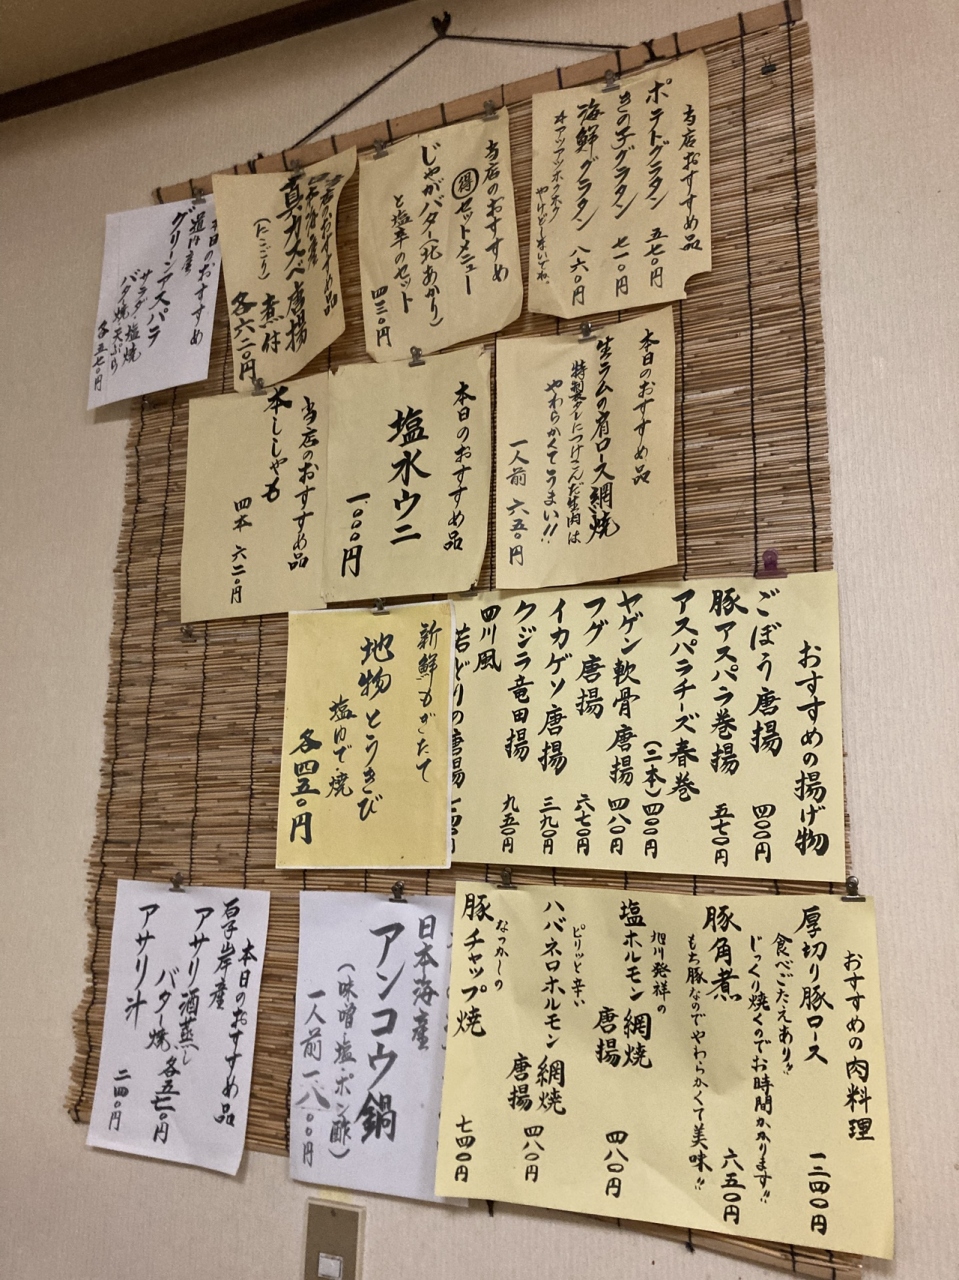 当店おすすめ品
ポテトグラタン 五七〇円
きの子グラタン 七一〇円
海鮮グラタン 八六〇円
※アツアツホクホク
やけどしないでね。
当店のおすすめ
得セットメニュー
じゃがバター(北あかり)
と塩辛のセット
四三〇円
当店のおすすめ品
真カスベ 唐揚
煮付
(にこごり)
各六二〇円
本日のおすすめ
道内産
グリーンアスパラ
サラダ・塩焼
バター焼・天ぷら
各五七〇円
本日のおすすめ品
生ラムの肩ロース網焼
特製タレにつけこんだ生肉は
やわらかくてうまい!!
一人前 六五〇円
本日のおすすめ品
塩水ウニ
一、〇〇〇円
当店のおすすめ品
本ししゃも
四本 六二〇円
おすすめの揚げ物
ごぼう唐揚 四〇〇円
豚アスパラ巻揚 五七〇円
アスパラチーズ春巻
(二本)四〇〇円
ヤゲン軟骨唐揚 四八〇円
フグ唐揚 六七〇円
イカゲソ唐揚 三九〇円
クジラ竜田揚 九五〇円
四川風
若どりの唐揚
新鮮もぎたて
地物とうきび
塩ゆで・焼
各四五〇円
おすすめの肉料理
厚切り豚ロース 一二四〇円
食べごたえあり!!
じっくり焼くのでお時間かかります!!
豚角煮 六五〇円
もち豚なのでやわらかくて美味!!
旭川発祥の
塩ホルモン 網焼
唐揚 四八〇円
ピリッと辛い
ハバネロホルモン 網焼
唐揚 四八〇円
なつかしの
豚チャップ焼 七四〇円
日本海産
アンコウ鍋
(味噌・塩・ポン酢)
一人前 一、八〇〇円
本日のおすすめ品
厚岸産
アサリ酒蒸し
バター焼 各五七〇円
アサリ汁 二四〇円